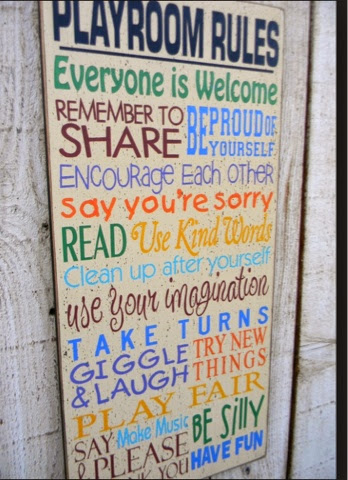 PLAYROOM RULES
Everyone is Welcome
REMEMBER TO SHARE
BE PROUD OF YOURSELF
ENCOURAGE EACH OTHER
say you're sorry
READ Use Kind Words
Clean up after yourself
use your imagination
TAKE TURNS
GIGGLE & LAUGH
TRY NEW THINGS
PLAY FAIR
SAY & PLEASE
Make Music
BE SillY
HAVE FUN